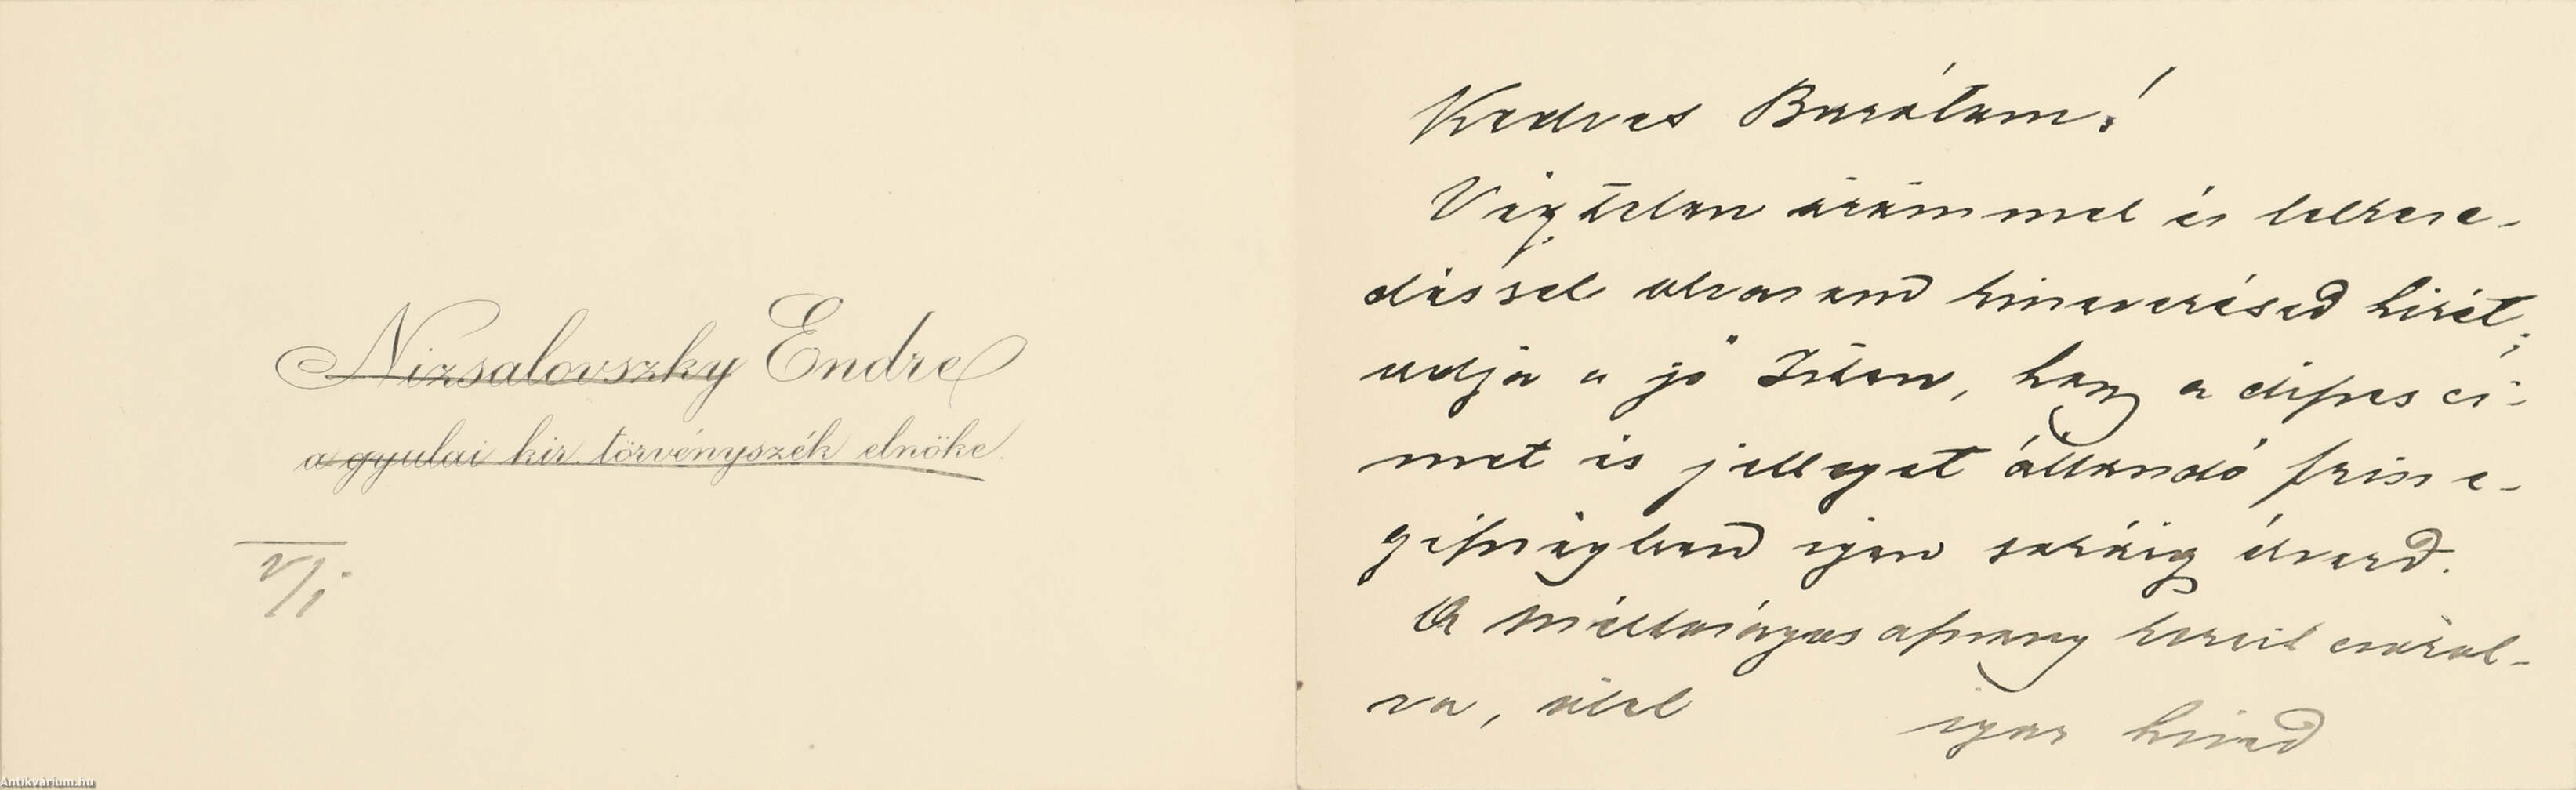 Nizsalovszky Endre
a gyulai kir. törvényszék elnöke.
V/1
Kedves Barátom!
Végtelen örömmel és lelkese-
déssel olvasom kinevezésed hirét;
adja a jó Isten, hogy a díszes cí-
met és jelleget állandó friss e-
gészségben igen soráig élvezd.
A Méltóságos asszony kezeit csókol-
va, ölel
igaz hived
Antikvárium.hu